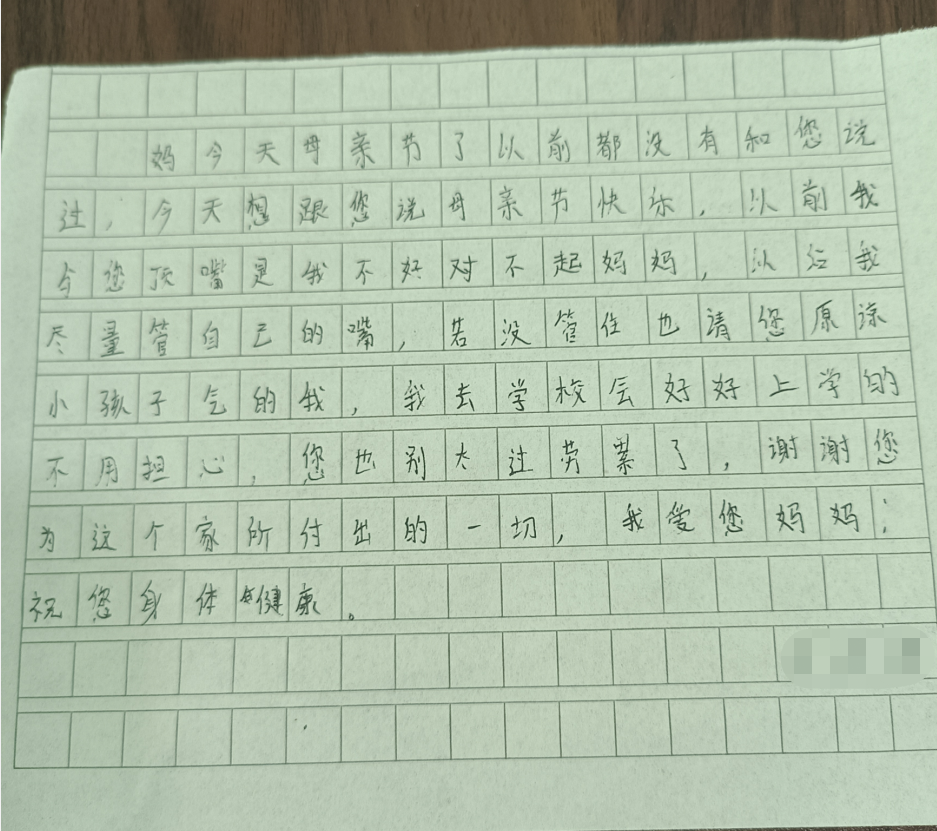 妈今天母亲节了以前都没有和您说
过，今天想跟您说母亲节快乐，以前我
与您顶嘴是我不好对不起妈妈，以后我
尽量管自己的嘴，若没管住也请您原谅
小孩子气的我，我去学校会好好上学的
不用担心，您也别太过劳累了，谢谢您
为这个家所付出的一切，我爱您妈妈；
祝您身体健康。